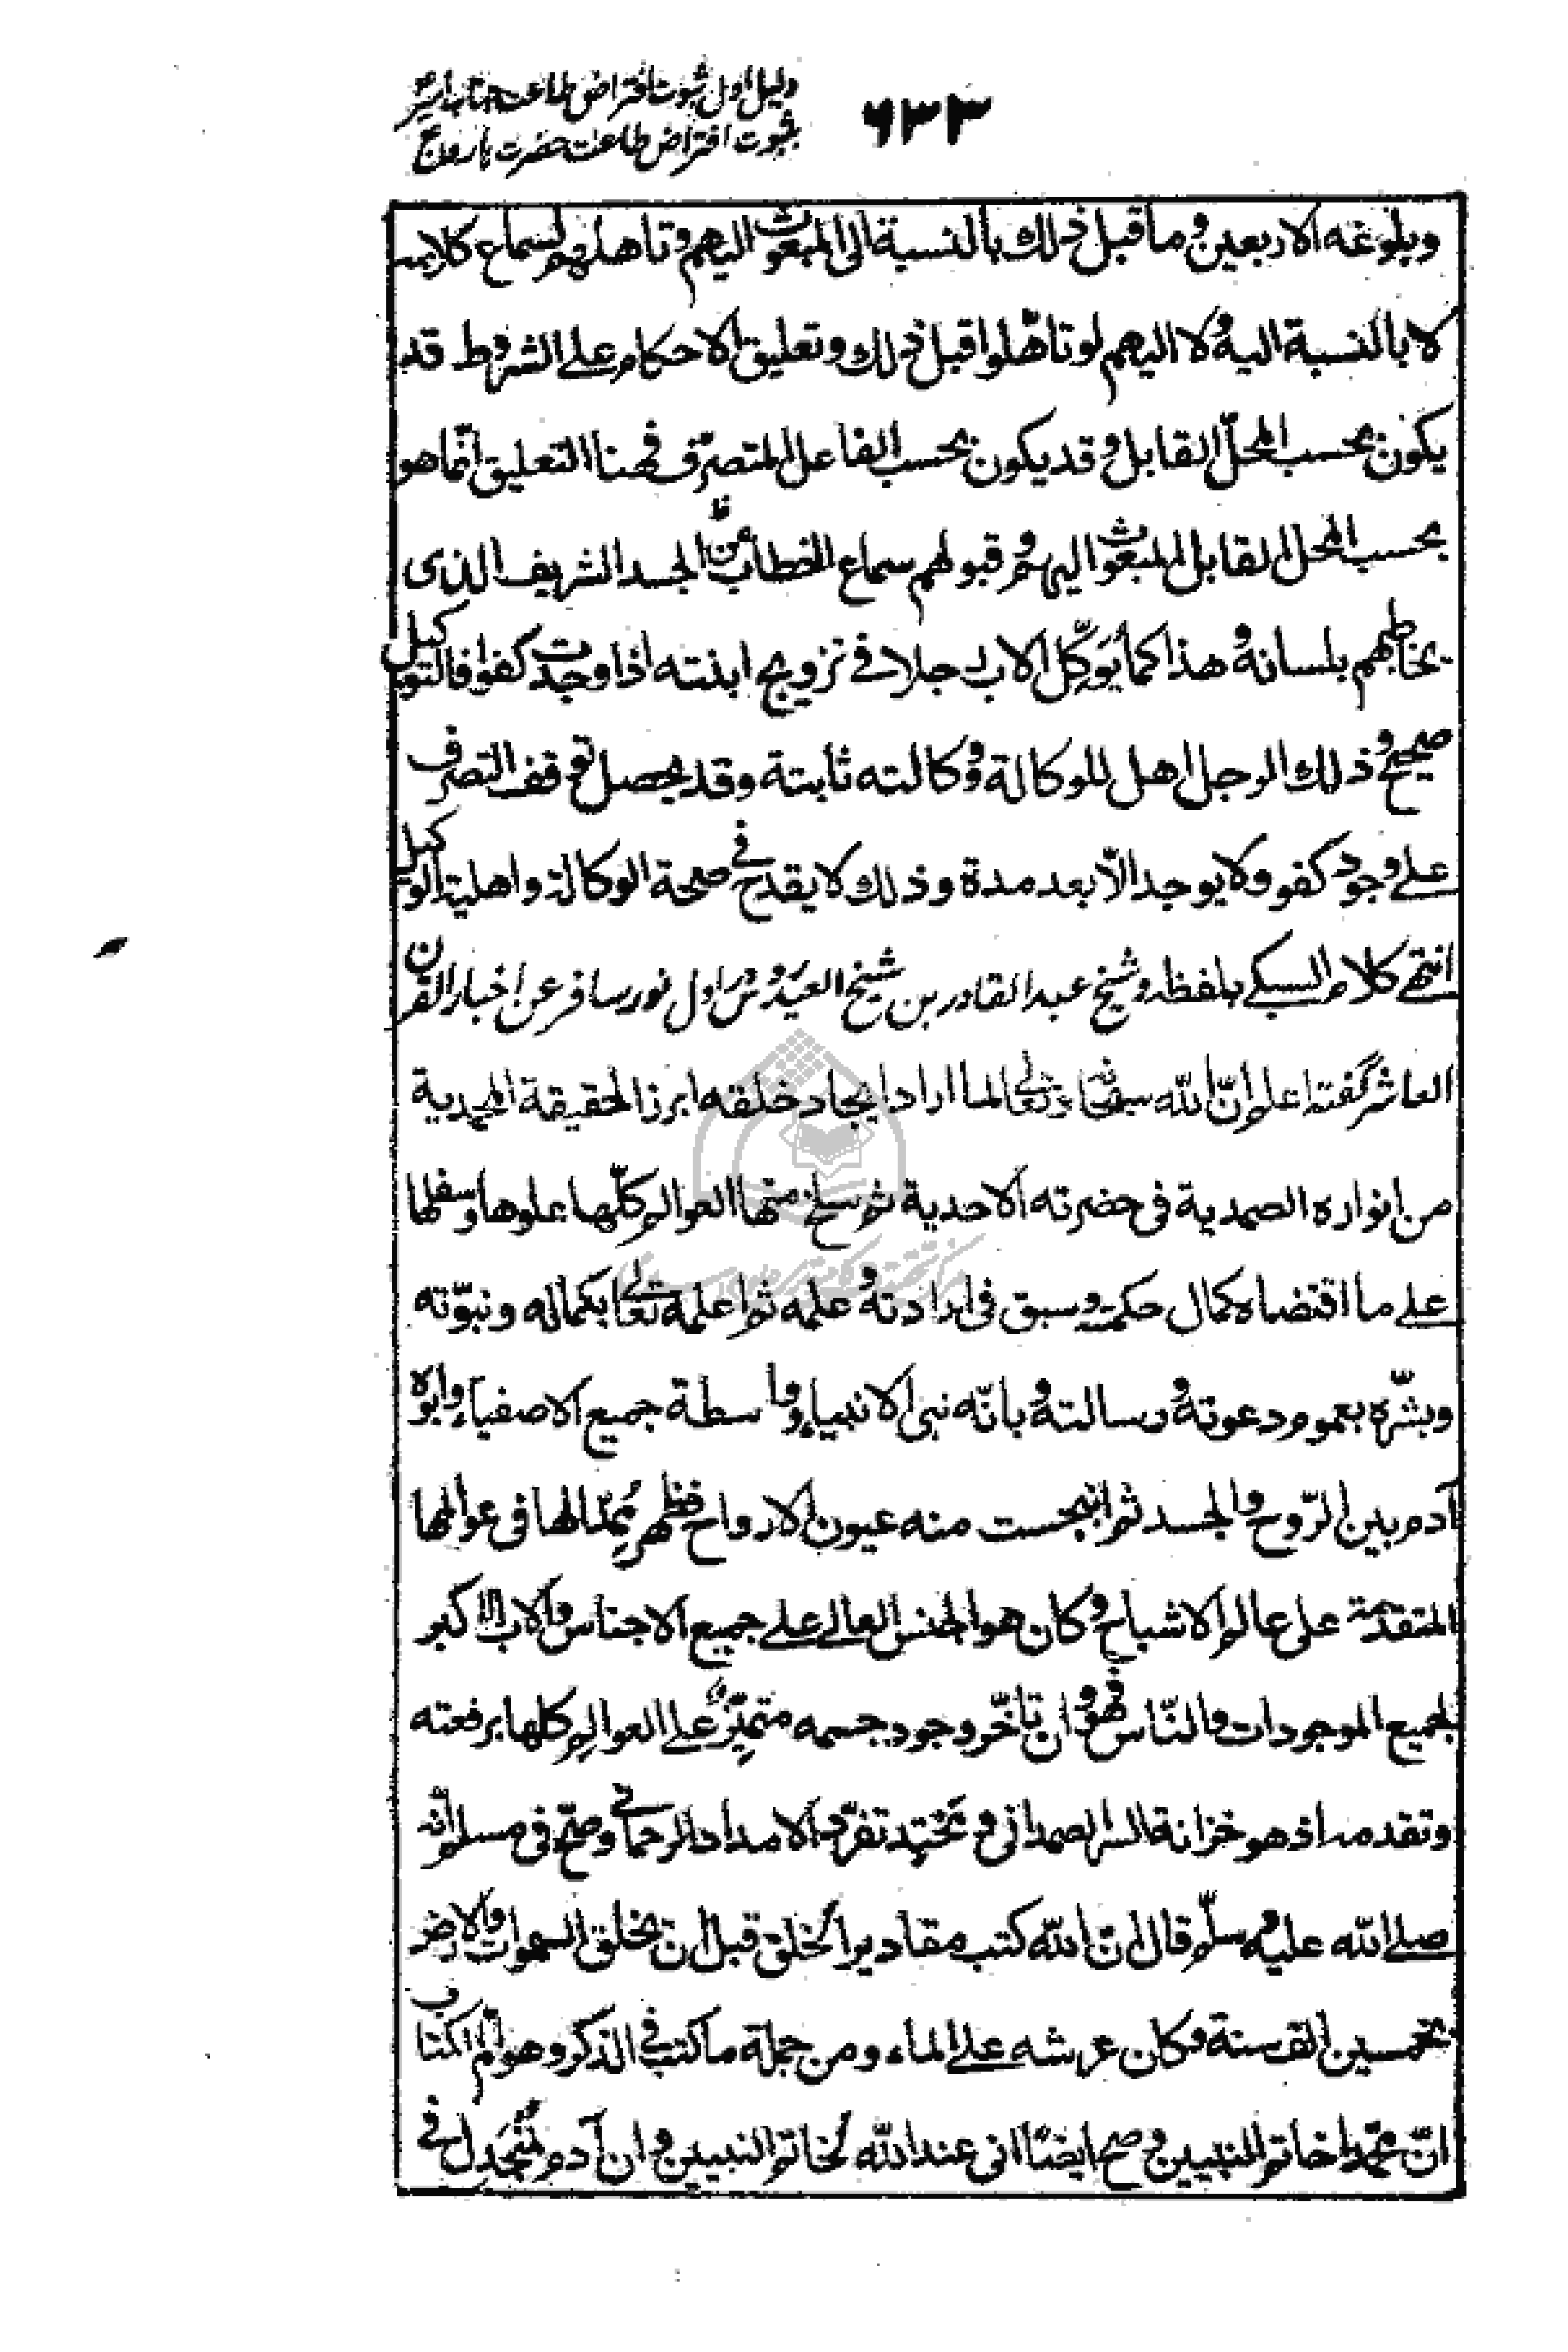 دلیل اول ثبوت افتراض طاعت جناب امیرؑ
۶۳۳
بثبوت افتراض طاعت حضرت هارونؑ
وبلوغه الاربعین وما قبل ذلك بالنسبة الی المبعوث الیهم وتاهلهم لسماع کلامه
لا بالنسبة الیه ولا الیهم لو تاهّلوا قبل ذلك وتعلیق الاحکام علی الشروط قد
یکون بحسب المحلّ القابل وقد یکون بحسب الفاعل المتصرّف فهنا التعلیق انّما هو
بحسب المحل القابل المبعوث الیهم وقبولهم سماع الخطاب من الجسد الشریف الذی
یخاطبهم بلسانه وهذا کما یوکّل الاب رجلا فی تزویج ابنته اذا وجدت کفوا فالتوکیل
صحیح وذلك الرجل اهل للوکالة ووکالته ثابتة وقد یحصل توقف التصرف
علی وجود کفو ولا یوجد الّا بعد مدة وذلك لا یقدح فی صحة الوکالة واهلیة الوکیل
انتهی کلام السبکی بلفظه وشیخ عبد القادر بن شیخ العیدروس در اول نور سافر عن اخبار القرن
العاشر گفته اعلم انّ الله سبحانه وتعالی لما اراد ایجاد خلقه ابرز الحقیقة المحمدیة
من انواره الصمدیة فی حضرته الاحدیة ثم سلخ منها العوالم کلّها علوها وسفلها
علی ما اقتضاه کمال حکمته وسبق فی ارادته وعلمه ثم اعلمه تعالی بکماله ونبوّته
وبشّره بعموم دعوته ورسالته وبانّه نبی الانبیاء وواسطة جمیع الاصفیاء وابوه
آدم بین الرّوح والجسد ثم انبجست منه عیون الارواح فظهر مُمِدّا لها فی عوالمها
المتقدمة علی عالم الاشباح وکان هو الجنس العالی علی جمیع الاجناس والاب الاکبر
لجمیع الموجودات والنّاس فهو وان تاخّر وجود جسمه متمیّز علی العوالم کلها برفعته
وتقدمه اذ هو خزانة السر الصمدانی ومحتد تفرّد الامداد الرحمانی وصحّ فی مسلم انّه
صلی الله علیه وسلّم قال انّ الله کتب مقادیر الخلق قبل ان یخلق السموات والارض
بخمسین الف سنة وکان عرشه علی الماء ومن جملة ما کتب فی الذکر وهو امّ الکتاب
انّ محمّدا خاتم النبیین وصح ایضًا انی عند الله لخاتم النبیین وان آدم لمُنجَدِل فی